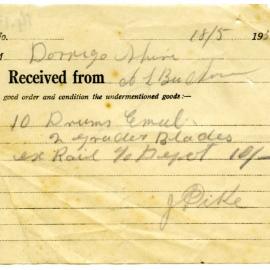 No. 18/5 195
M Dorrigo Shire
Received from A L
good order and condition the undermentioned goods:—
10 Drums Emul.
2 Grader Blades
ex Rail to Depot 10/-
J Pike